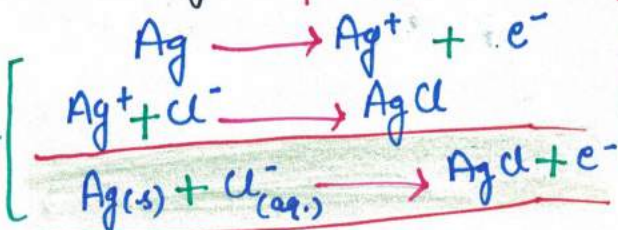 Ag ⟶ Ag⁺ + e⁻
Ag⁺ + Cl⁻ ⟶ AgCl
Ag(s) + Cl⁻(aq.) ⟶ AgCl + e⁻